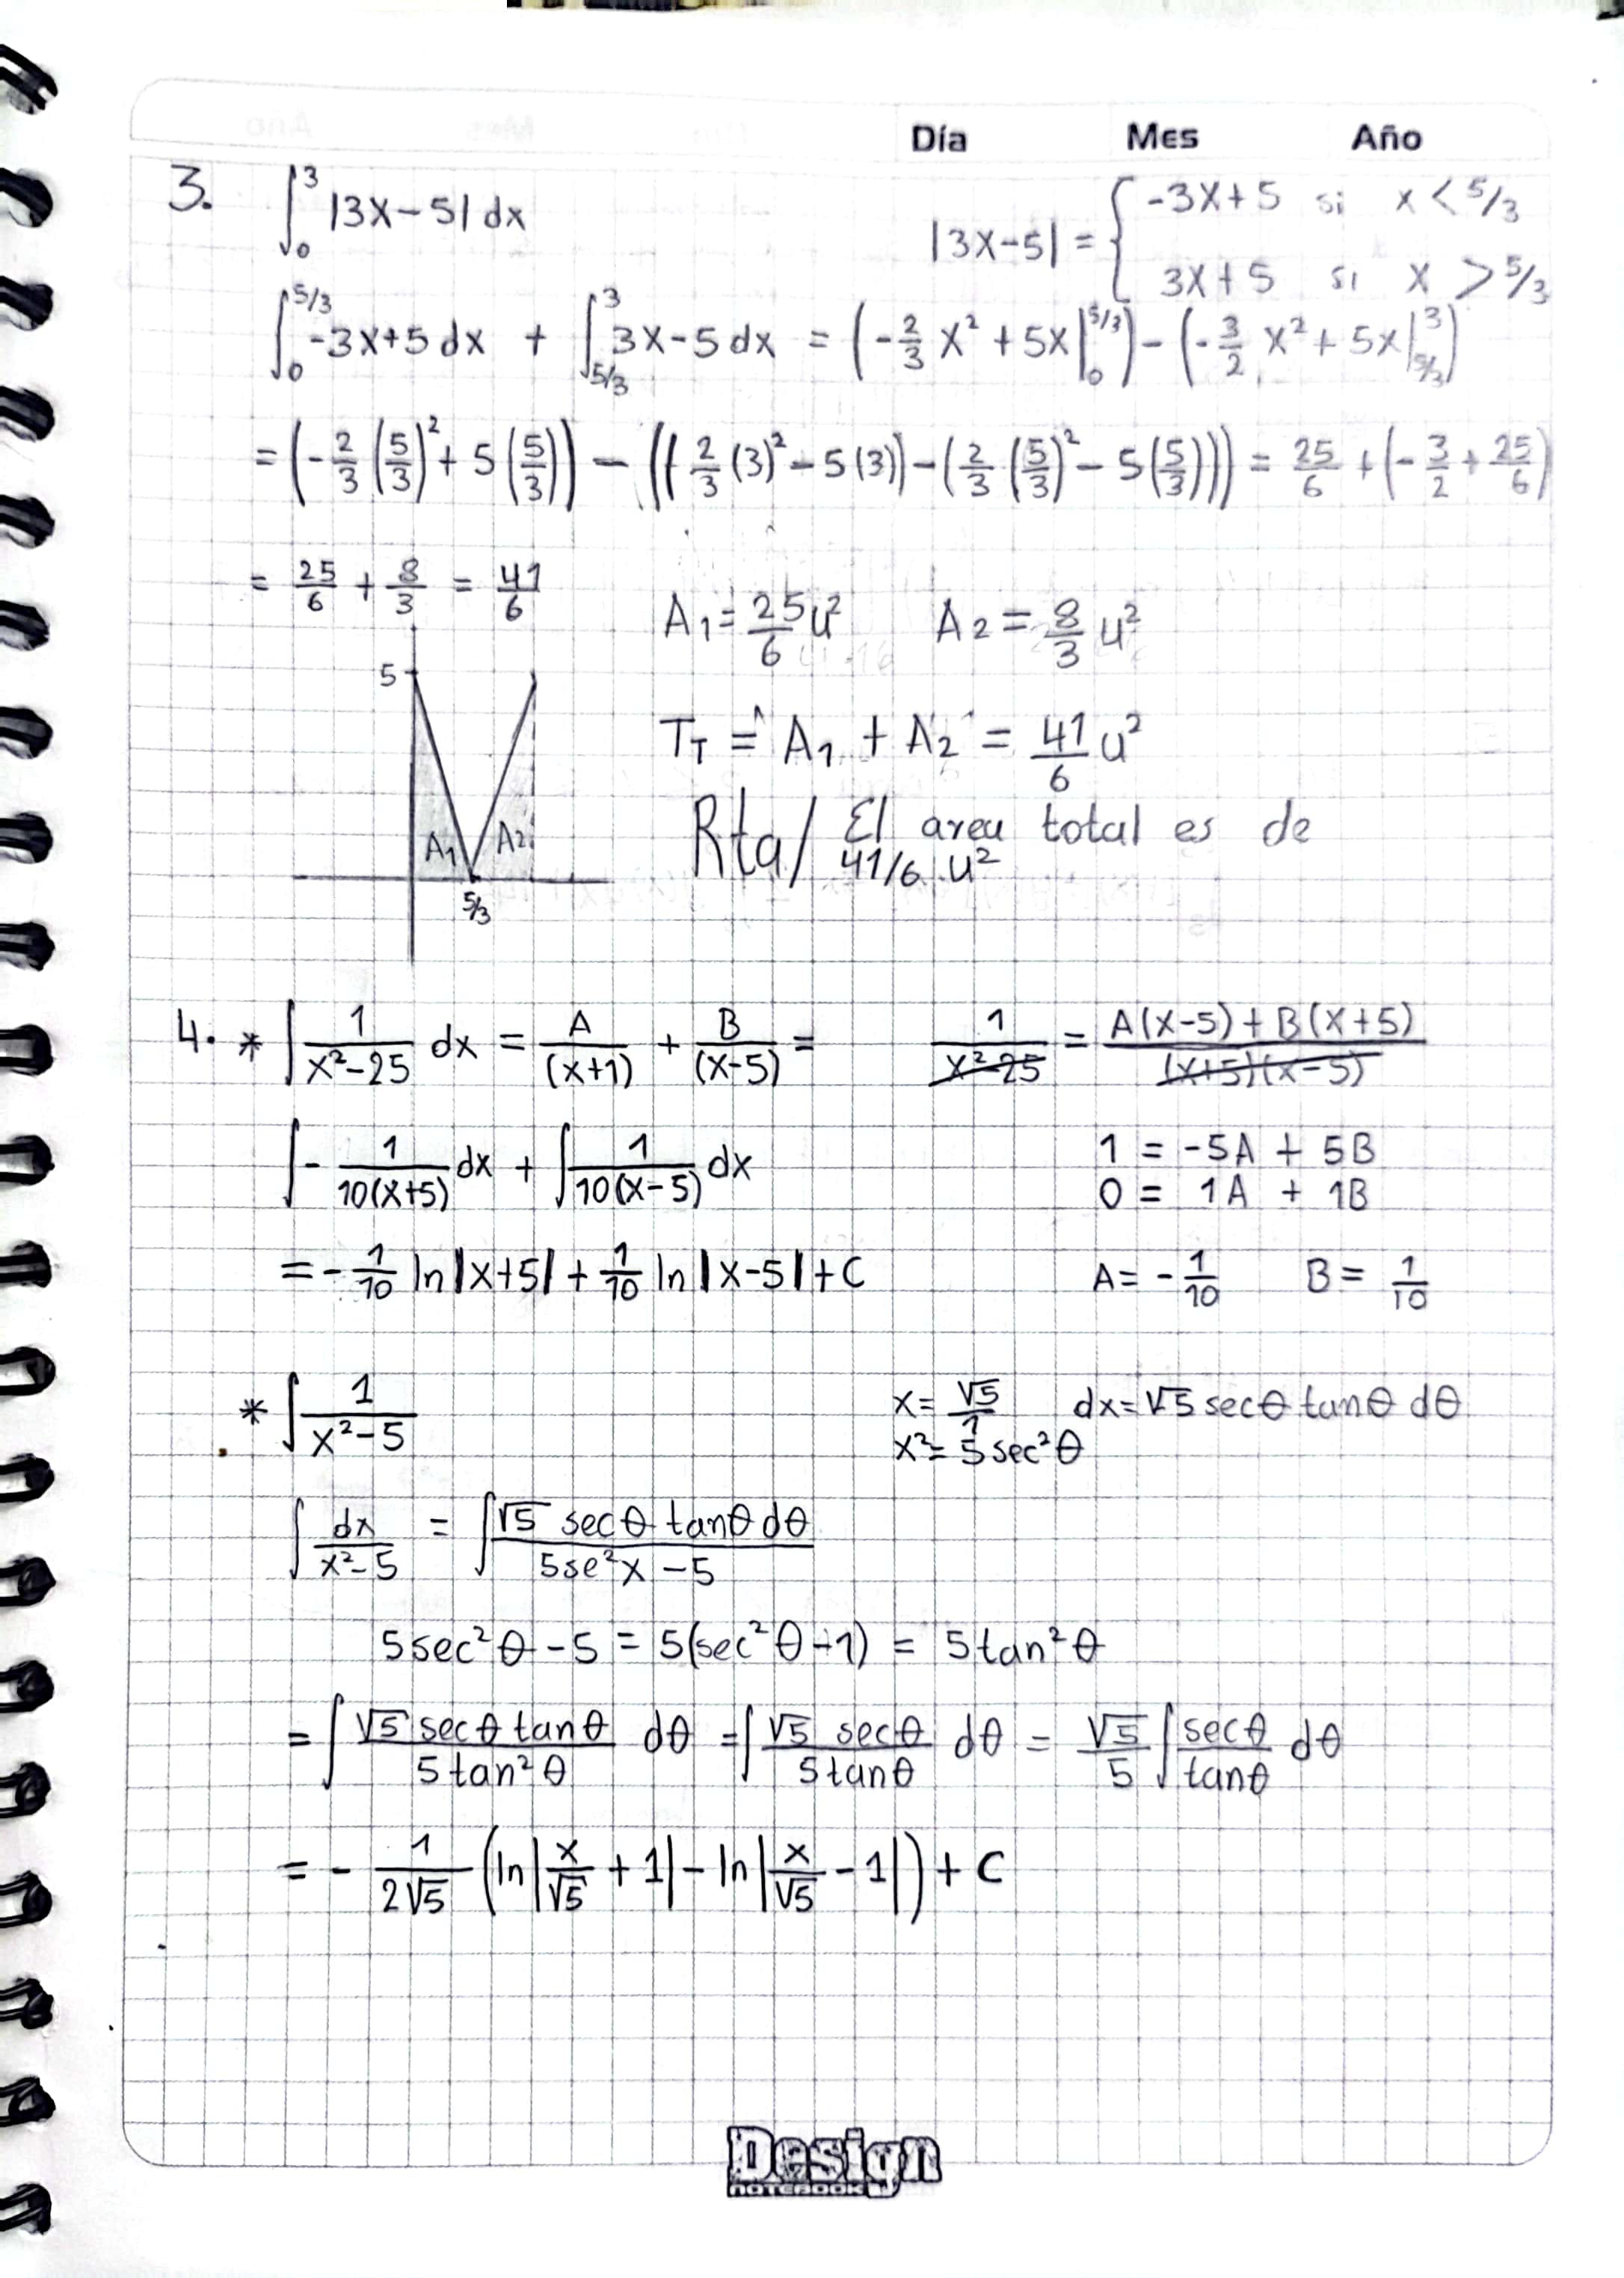 Día Mes Año
3. ∫₀³ |3x-5| dx
|3x-5| = { -3x+5 si x < 5/3
3x+5 si x > 5/3
∫₀^(5/3) -3x+5 dx + ∫_(5/3)^3 3x-5 dx = (-2/3 x² + 5x |₀^(5/3)) - (-3/2 x² + 5x |_(5/3)^3)
= (-2/3 (5/3)² + 5 (5/3)) - ((2/3 (3)² - 5(3)) - (2/3 (5/3)² - 5(5/3))) = 25/6 + (-3/2 + 25/6)
= 25/6 + 8/3 = 41/6
A₁ = 25/6 u² A₂ = 8/3 u²
5
T_T = A₁ + A₂ = 41/6 u²
Rta/ El area total es de
41/6 u²
A₁ A₂
5/3
4. * ∫ 1/(x²-25) dx = A/(x+1) + B/(x-5) = 1/(x²-25) = (A(x-5) + B(x+5))/((x+5)(x-5))
∫ - 1/(10(x+5)) dx + ∫ 1/(10(x-5)) dx
1 = -5A + 5B
0 = 1A + 1B
= -1/10 ln|x+5| + 1/10 ln|x-5| + C
A = -1/10 B = 1/10
* ∫ 1/(x²-5)
x = √5/1 dx = √5 secθ tanθ dθ
x² = 5 sec²θ
∫ dx/(x²-5) = ∫ (√5 secθ tanθ dθ)/(5se²x - 5)
5sec²θ - 5 = 5(sec²θ - 1) = 5tan²θ
= ∫ (√5 secθ tanθ)/(5 tan²θ) dθ = ∫ (√5 secθ)/(5tanθ) dθ = √5/5 ∫ secθ/tanθ dθ
= - 1/(2√5) (ln|x/√5 + 1| - ln|x/√5 - 1|) + C
Design
NOTEBOOK